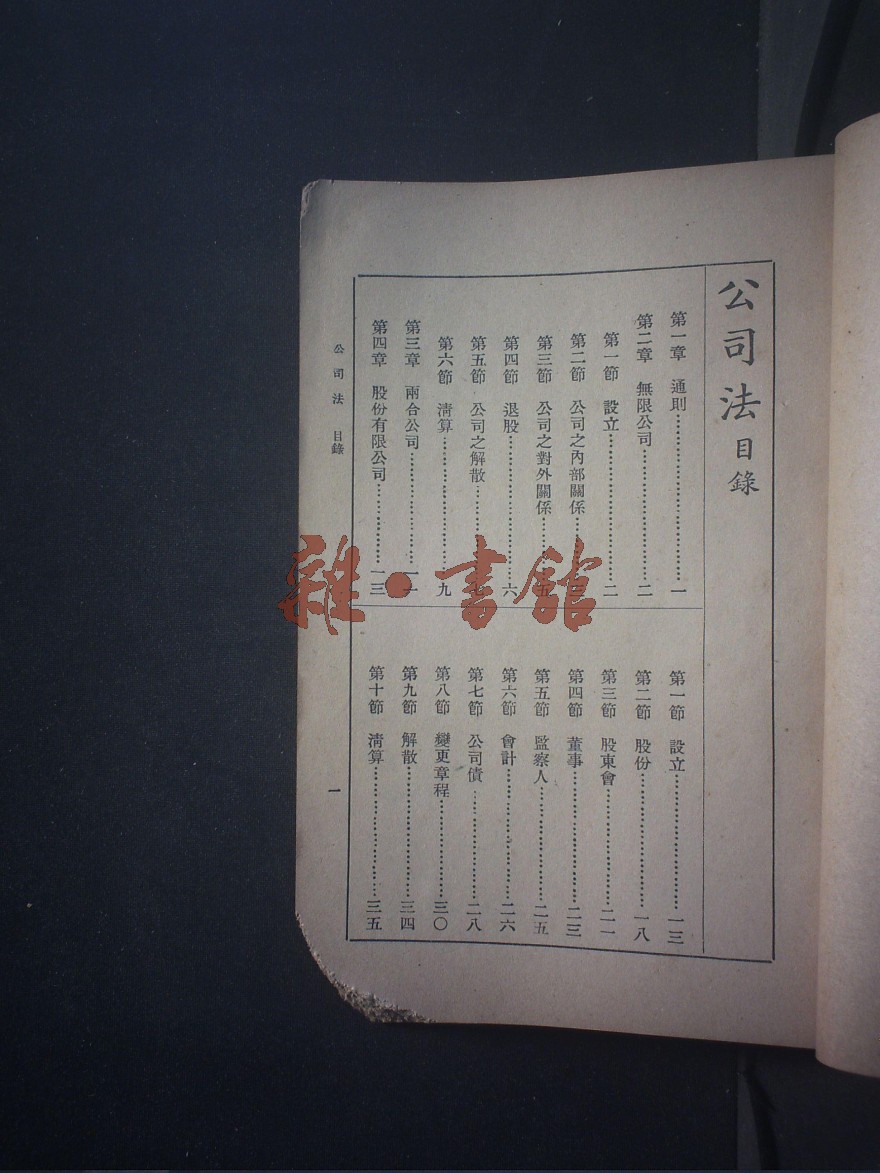 公司法目錄
第一章 通則……一
第二章 無限公司……二
第一節 設立……二
第二節 公司之內部關係……
第三節 公司之對外關係……五
第四節 退股……六
第五節 公司之解散……
第六節 清算……九
第三章 兩合公司……一一
第四章 股份有限公司……一三
第一節 設立……一三
第二節 股份……一八
第三節 股東會……二一
第四節 董事……二三
第五節 監察人……二五
第六節 會計……二六
第七節 公司債……二八
第八節 變更章程……三〇
第九節 解散……三四
第十節 清算……三五
公司法 目錄
一
雜·書館